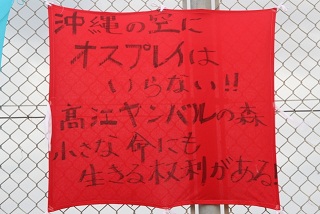 沖縄の空に
オスプレイは
いらない!!
髙江ヤンバルの森
小さな命にも
生きる权利がある!